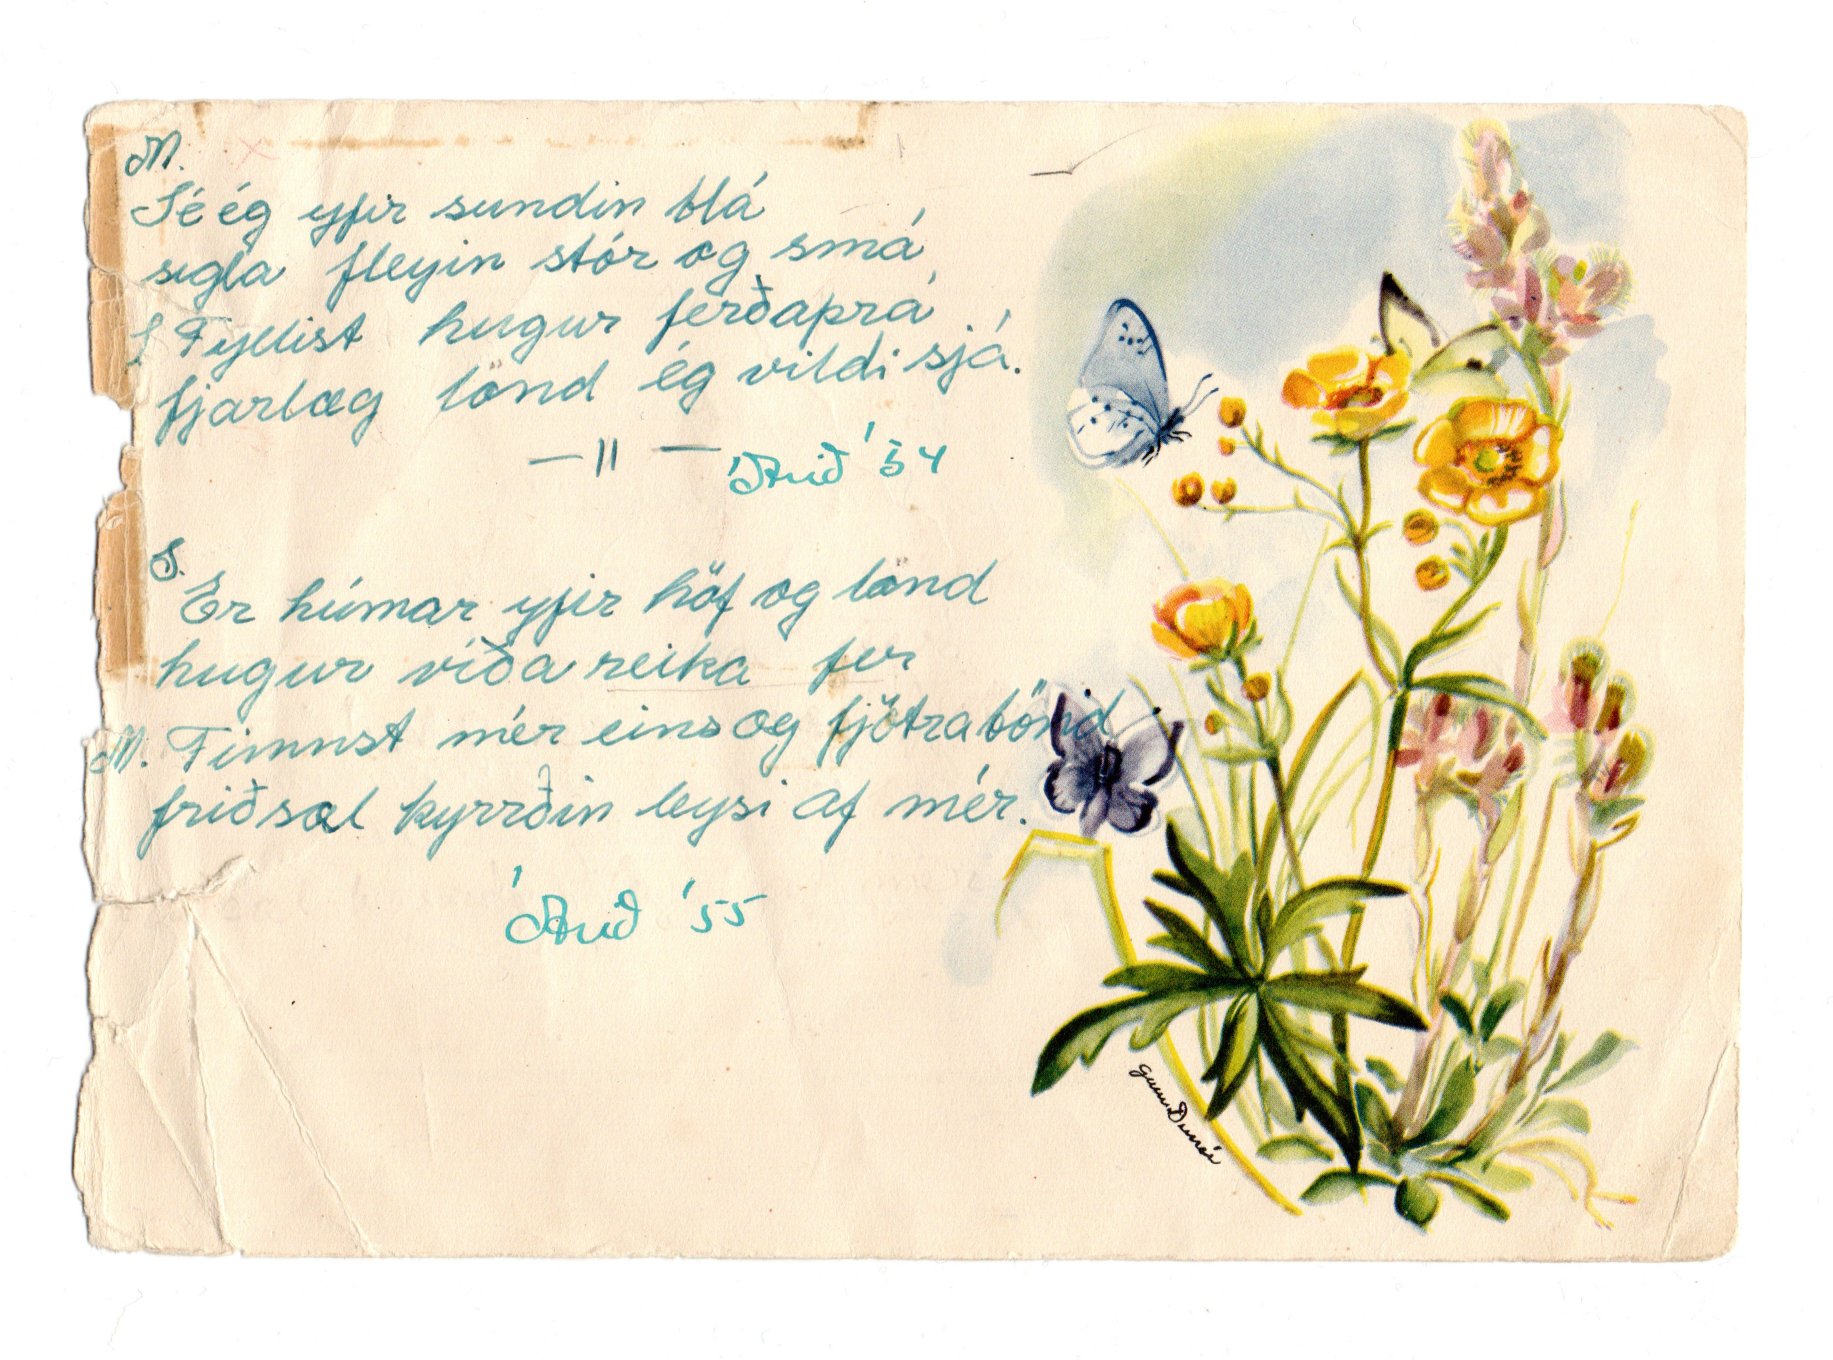 M.
Sé ég yfir sundin blá
sigla fleyin stór og smá,
S Fyllist hugur ferðaþrá
fjarlæg lönd ég vildi sjá.
— 11 —
Árið '54
S.
Er húmar yfir höf og lönd
hugur víða reika fer
M. Finnst mér eins og fjötrabönd
friðsæl kyrrðin leysi af mér.
Árið '55